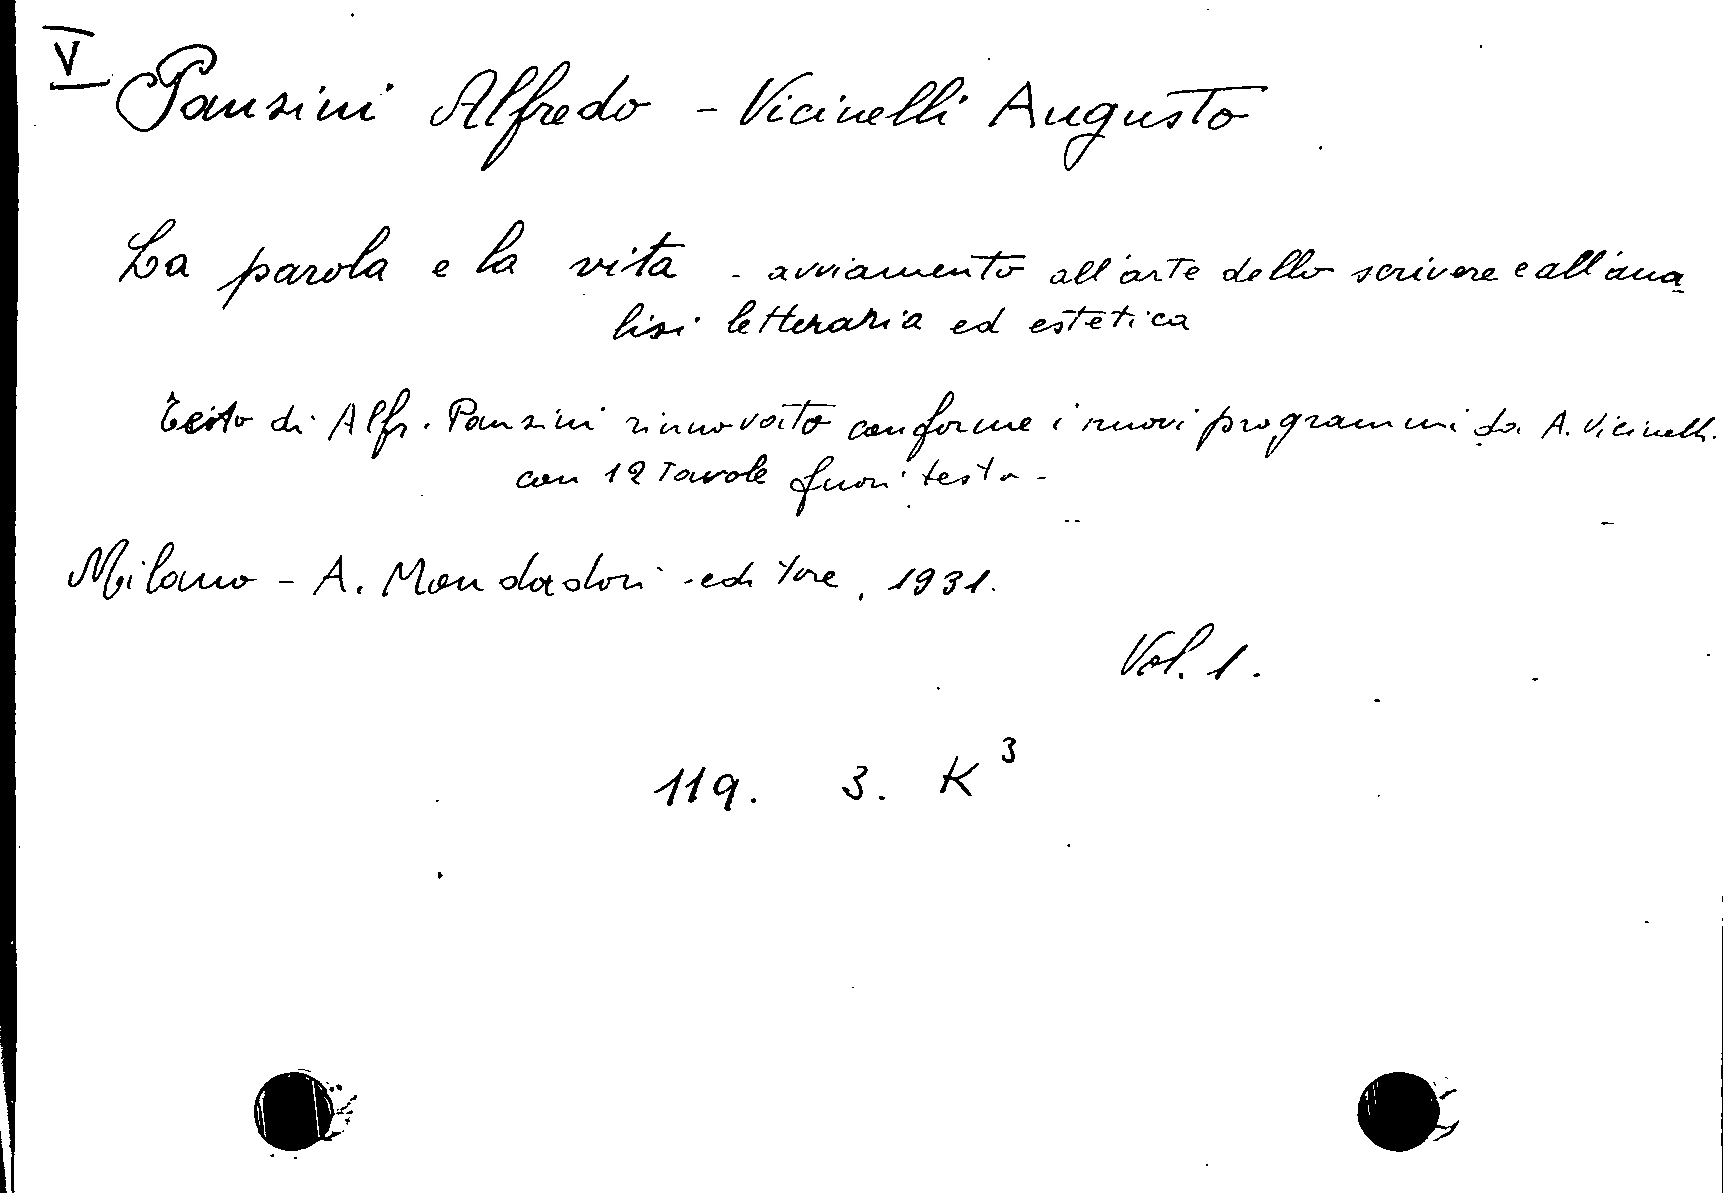 V
Panzini Alfredo - Vicinelli Augusto
La parola e la vita - avviamento all'arte dello scrivere e all'ana
lisi letteraria ed estetica
Testo di Alfr. Panzini rinnovato conforme i nuovi programmi da A. Vicinelli.
con 12 tavole fuori testo -
Milano - A. Mondadori - editore, 1931.
Vol. 1.
119. 3. K³